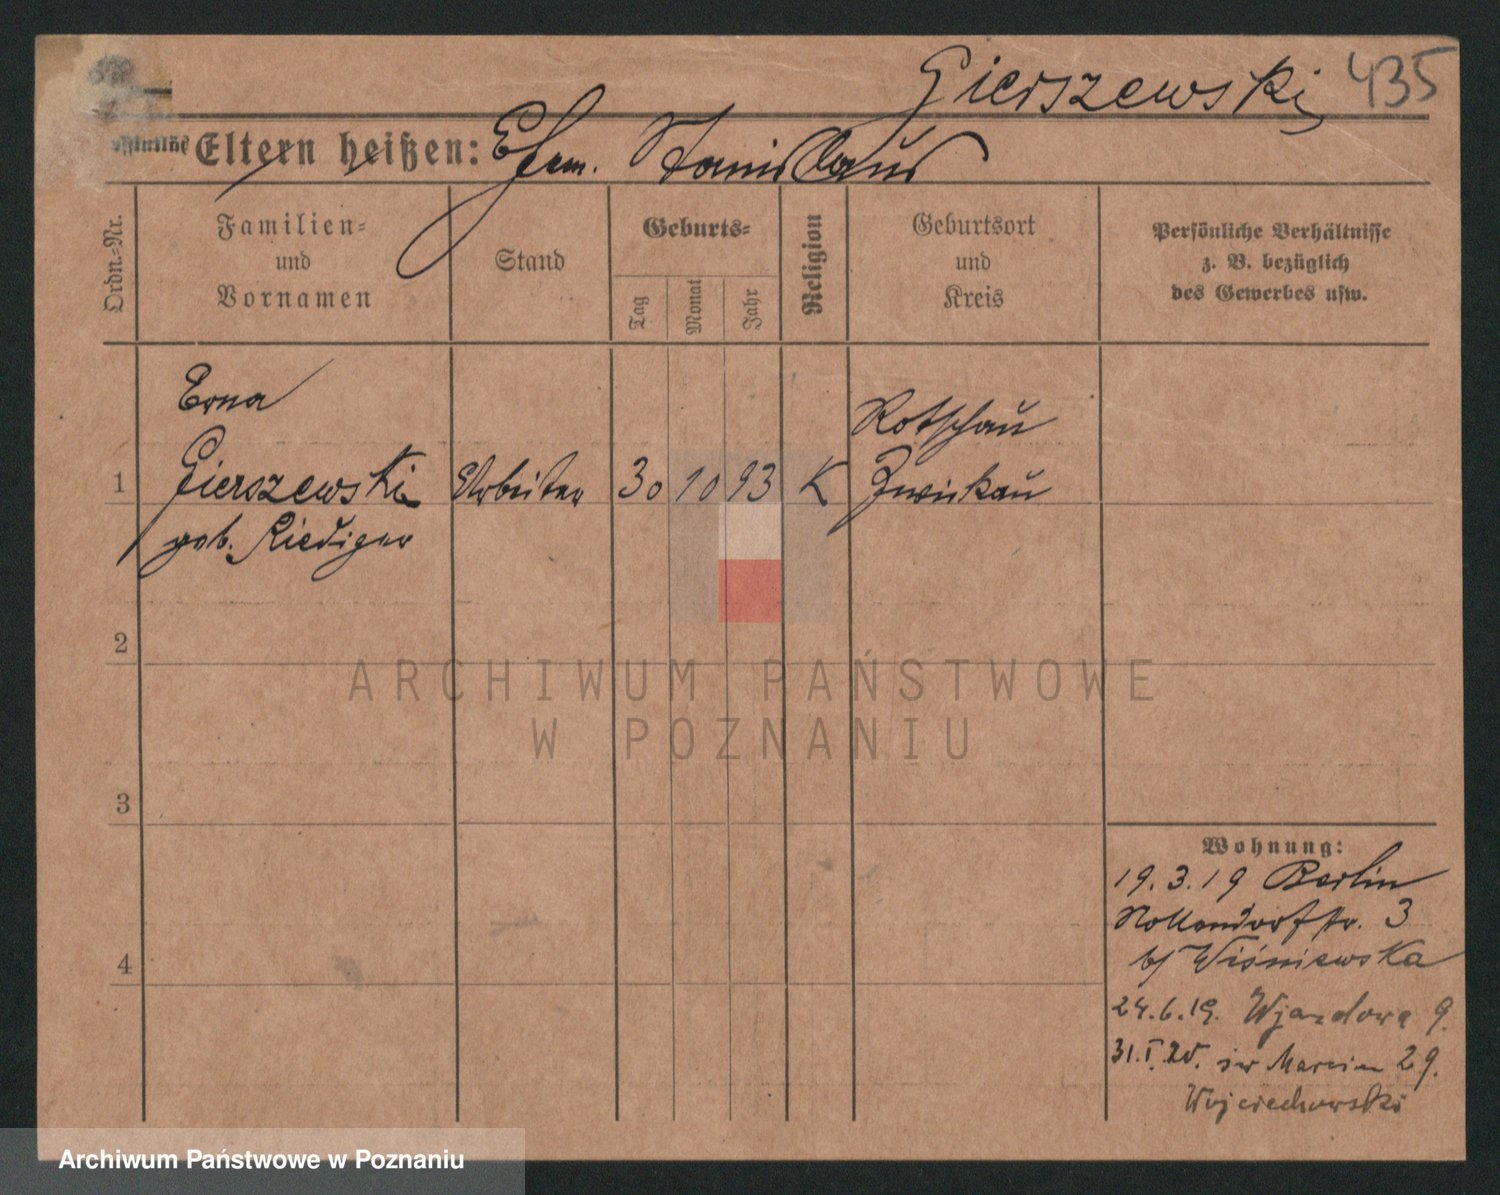 Gierszewski 435
Eltern heißen: Ehem. Stanislaus
Ordn.-Nr.
Familien- und Vornamen
Stand
Geburts-
Tag
Monat
Jahr
Religion
Geburtsort und Kreis
Persönliche Verhältnisse
z. B. bezüglich
des Gewerbes usw.
Erna
Rotschau
1 Gierszewski Arbeiter 30 10 93 K Zwickau
geb. Riediger
2
3
4
Wohnung:
19.3.19 Berlin
Nollendorfstr. 3
b/ Wiśniewska
24.6.19. Wjazdowa 9.
31.I.20. św Marcin 29.
Wojciechowski
ARCHIWUM PAŃSTWOWE
W POZNANIU
Archiwum Państwowe w Poznaniu